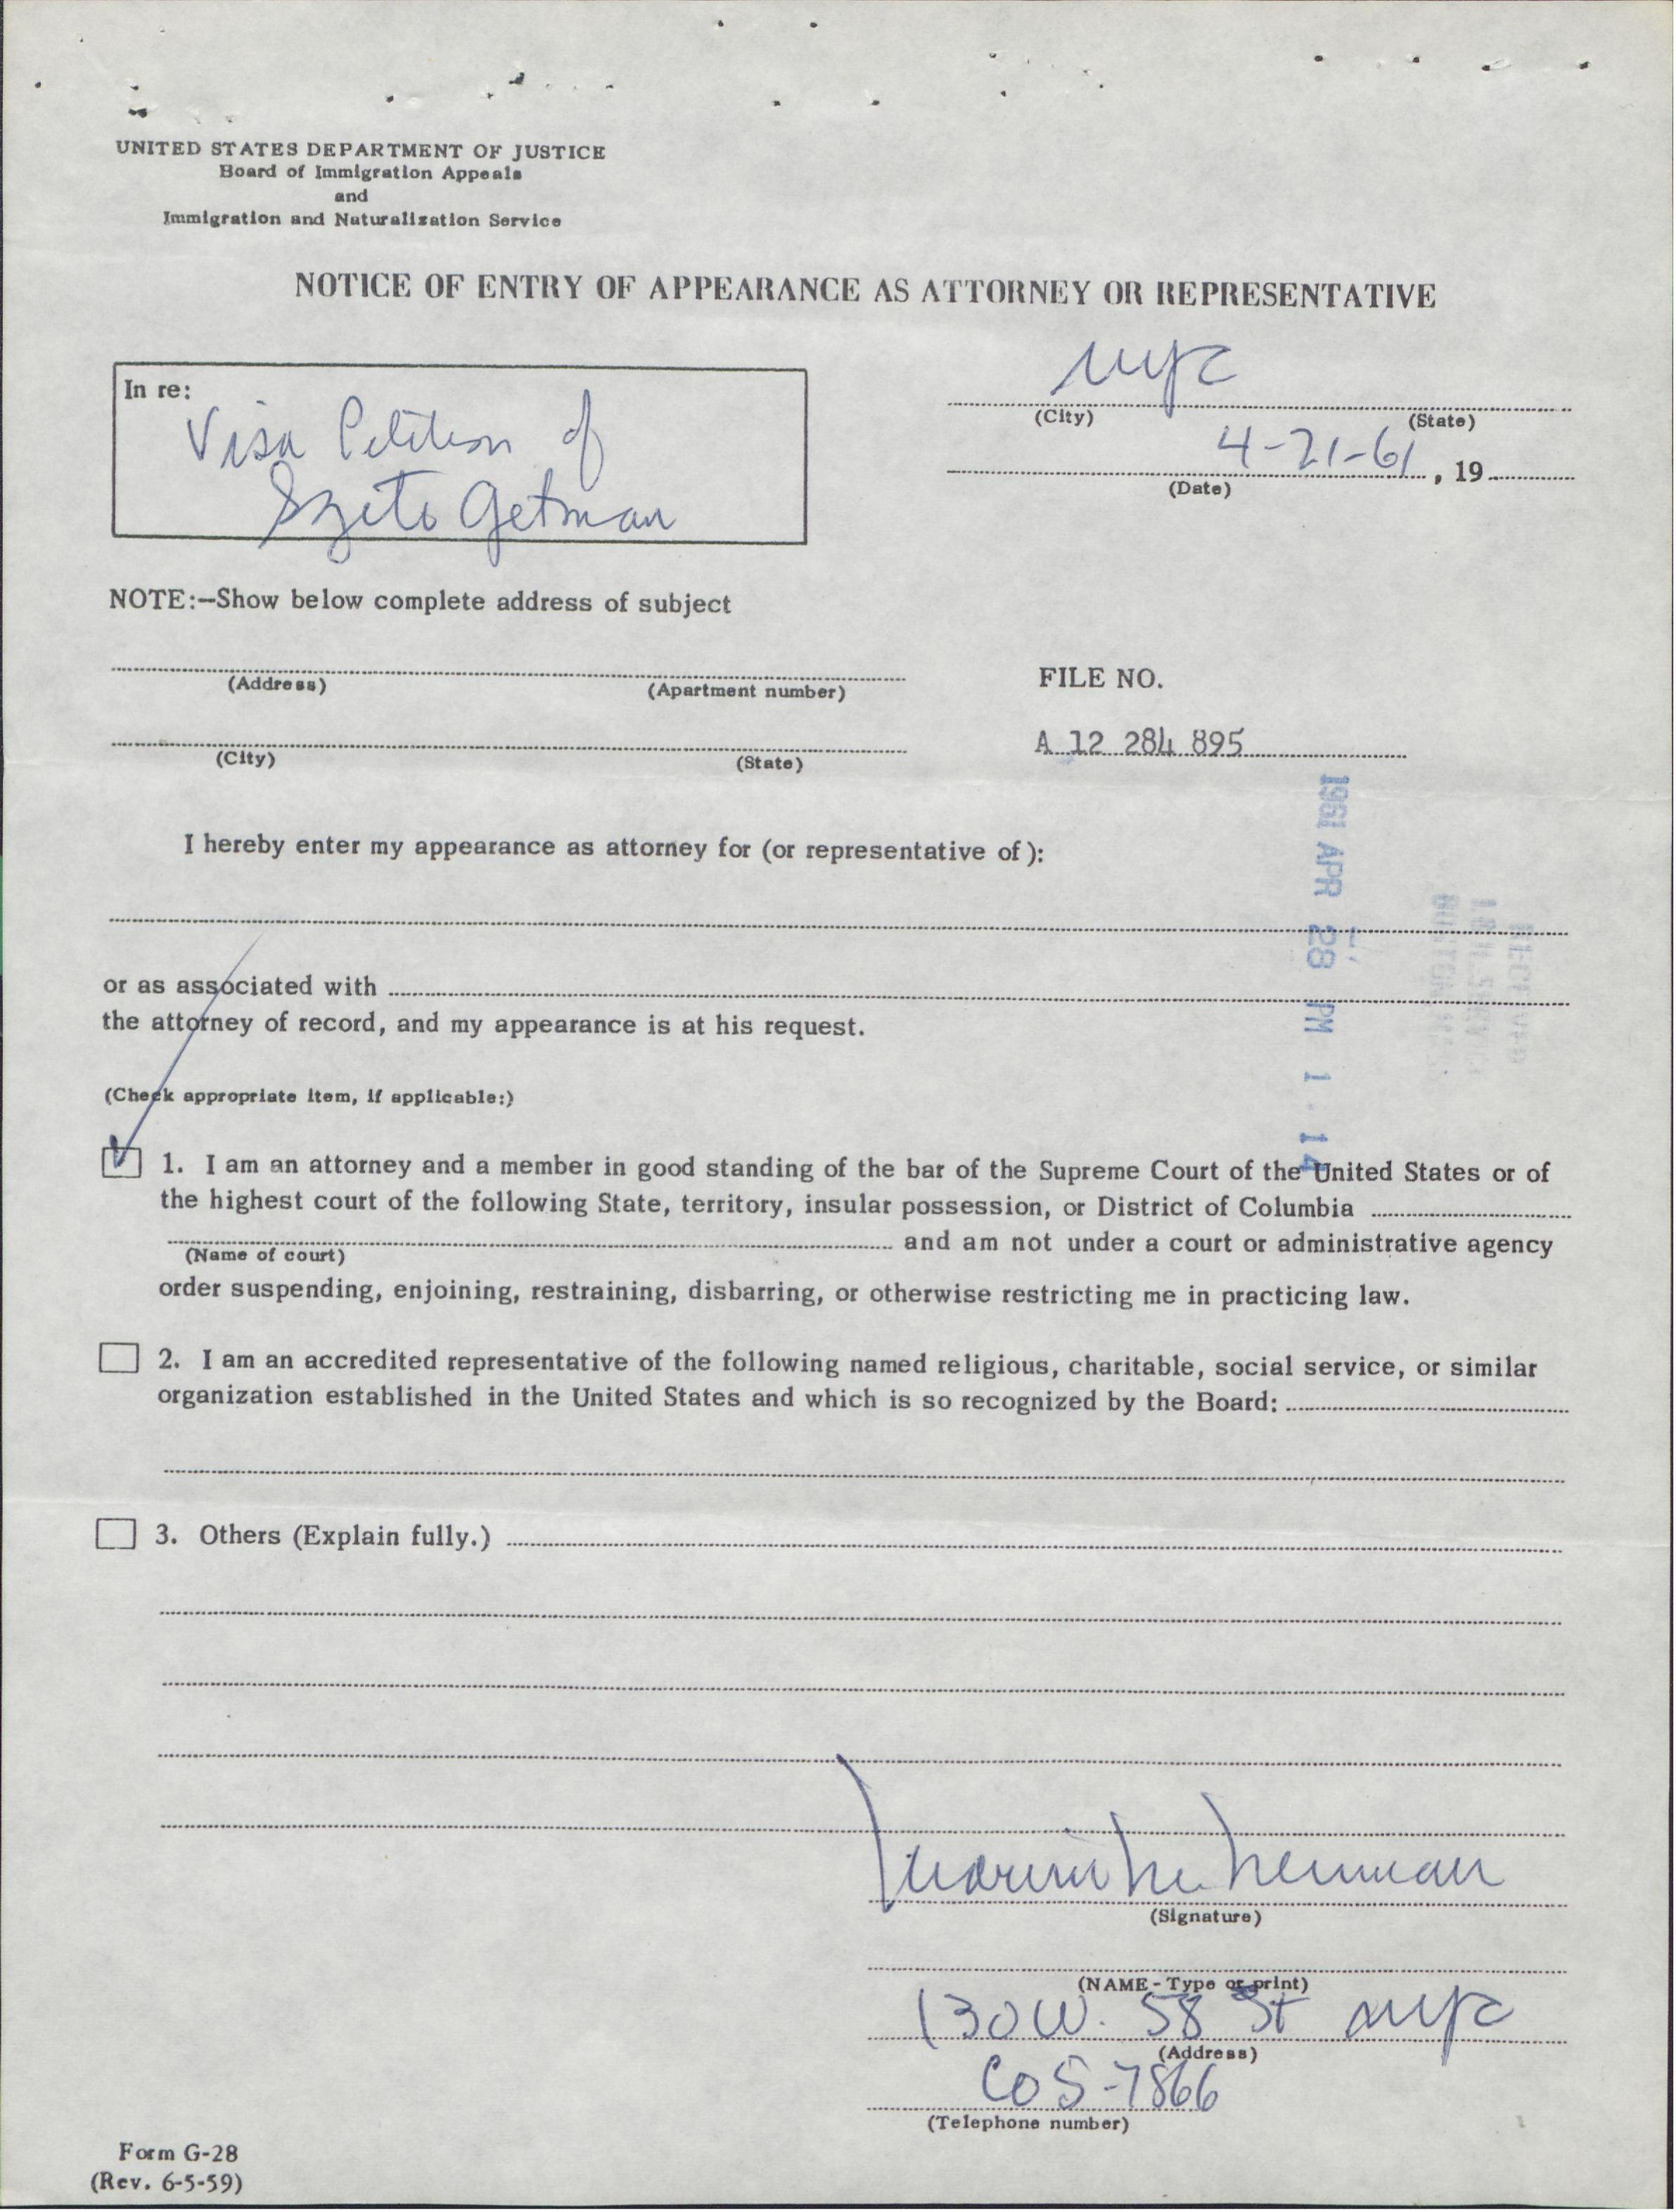 UNITED STATES DEPARTMENT OF JUSTICE
Board of Immigration Appeals
and
Immigration and Naturalization Service
NOTICE OF ENTRY OF APPEARANCE AS ATTORNEY OR REPRESENTATIVE
In re:
Visa Petition of
Szeto Getman
nyc
(City) (State)
4-21-61, 19
(Date)
NOTE:—Show below complete address of subject
(Address) (Apartment number)
(City) (State)
FILE NO.
A 12 284 895
1961 APR 28 PM 1 14
I hereby enter my appearance as attorney for (or representative of):
or as associated with
the attorney of record, and my appearance is at his request.
(Check appropriate item, if applicable:)
1. I am an attorney and a member in good standing of the bar of the Supreme Court of the United States or of
the highest court of the following State, territory, insular possession, or District of Columbia
and am not under a court or administrative agency
(Name of court)
order suspending, enjoining, restraining, disbarring, or otherwise restricting me in practicing law.
2. I am an accredited representative of the following named religious, charitable, social service, or similar
organization established in the United States and which is so recognized by the Board:
3. Others (Explain fully.)
(Signature)
(NAME - Type or print)
130 W. 58 St nyc
(Address)
CO 5-7866
(Telephone number)
Form G-28
(Rev. 6-5-59)